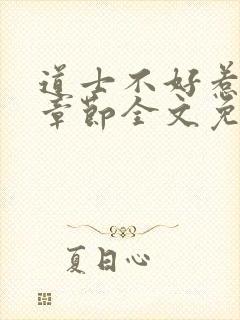 道士不好惹
章节全文免
夏日心